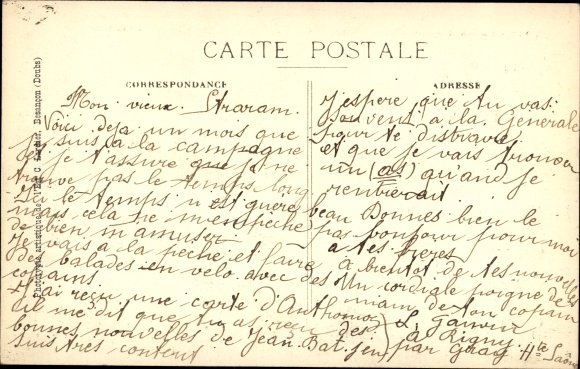 CARTE POSTALE
CORRESPONDANCE
Mon vieux Straram.
Voici déja un mois que
je suis à la campagne
et je t'assure que je ne
trouve pas le temps long
Ici le temps n'est guere beau
mais cela ne m'empêche pas
de bien m'amuser
Je vais à la pêche et faire
des balades en velo avec des
copains
J'ai reçu une carte d'Anthomoz
il me dit que tu as reçu des
bonnes nouvelles de Jean. Bat. j'en
suis tres content
ADRESSE
J'espere que tu vas
souvent à la Generale
pour te distraire
et que je vais trouver
un (as) quand je
rentrerait
Donnes bien le
bonjour pour moi
a tes freres
à bientot de tes nouvelles
Un cordiale poigne de
main de ton copain
L. Garvin
à Rigny
par Gray Hte Saône
Phototypie artistique de l'Edit. C. Besançon (Doubs)